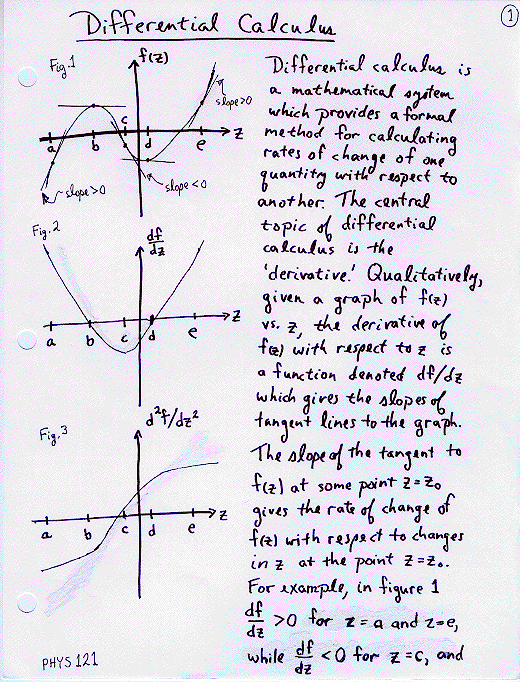 Differential Calculus
1
Fig.1
f(z)
slope>0
a
b
c
d
e
z
slope>0
slope<0
Fig.2
df/dz
a
b
c
d
e
z
Fig.3
d²f/dz²
a
b
c
d
e
z
Differential calculus is
a mathematical system
which provides a formal
method for calculating
rates of change of one
quantity with respect to
another. The central
topic of differential
calculus is the
'derivative.' Qualitatively,
given a graph of f(z)
vs. z, the derivative of
f(z) with respect to z is
a function denoted df/dz
which gives the slopes of
tangent lines to the graph.
The slope of the tangent to
f(z) at some point z=z₀
gives the rate of change of
f(z) with respect to changes
in z at the point z=z₀.
For example, in figure 1
df/dz >0 for z=a and z=e,
while df/dz <0 for z=c, and
PHYS 121